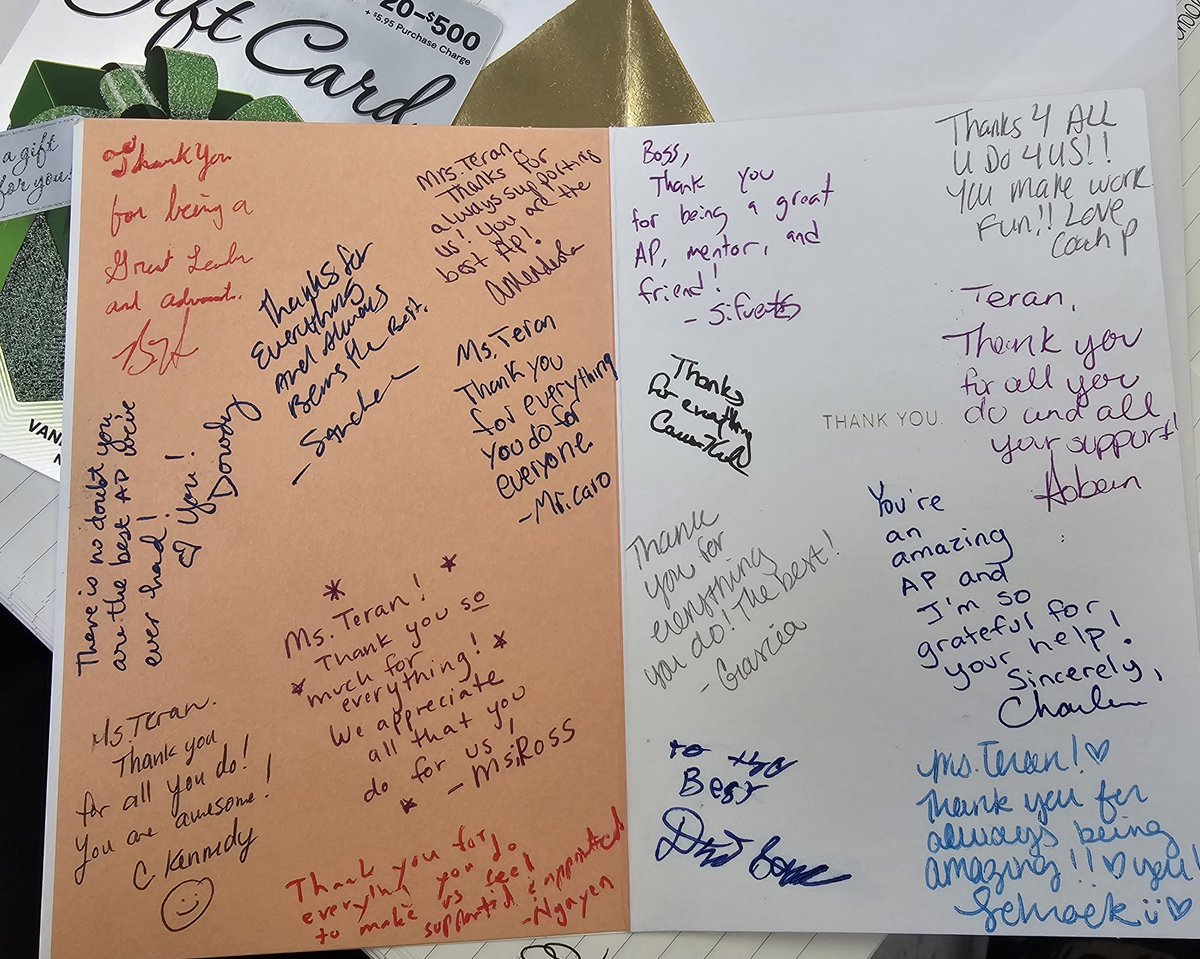 Gift Card
20-$500
+ $5.95 Purchase Charge
a gift
for you
VAN
Thank You
for being a
Great Leader
and advocate.
Mrs. Teran
Thanks for
always supporting
us! You are the
best AP!
Amendola
Thanks for
Everything
And Always
Being the Best.
- Sanchez
Ms. Teran
Thank you
for everything
you do for
everyone
-Mr. Caro
There is no doubt you
are the best AP we've
ever had!
♡ You!
Dowdy
Ms. Teran!
Thank you so
much for
everything!
We appreciate
all that you
do for us,
- Ms. Ross
Ms. Teran.
Thank you
for all you do!
You are awesome!
C Kennedy
Thank you for
everything you do
to make us feel
supported & appreciated
-Nguyen
Boss,
Thank you
for being a great
AP, mentor, and
friend!
- Sifuentes
Thanks 4 ALL
U Do 4 US!!
You make work
Fun!! Love
Coach P
Thanks
for everything
THANK YOU.
Teran,
Thank you
for all you
do and all
your support!
Thank
you for
everything
you do! The best!
- Garcia
You're
an
amazing
AP and
I'm so
grateful for
your help!
Sincerely,
To the
Best
Ms. Teran! ♡
Thank you for
always being
amazing!! ♡ you!
Schroek ii ♡